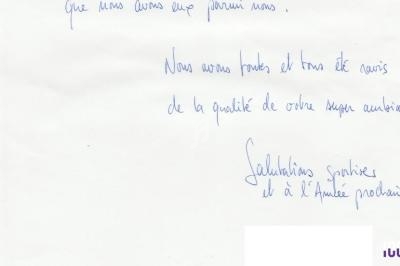 que nous avons eux parmi nous.
Nous avons toutes et tous été ravis
de la qualité de votre super ambian
Salutations sportives
et à l'Année prochain